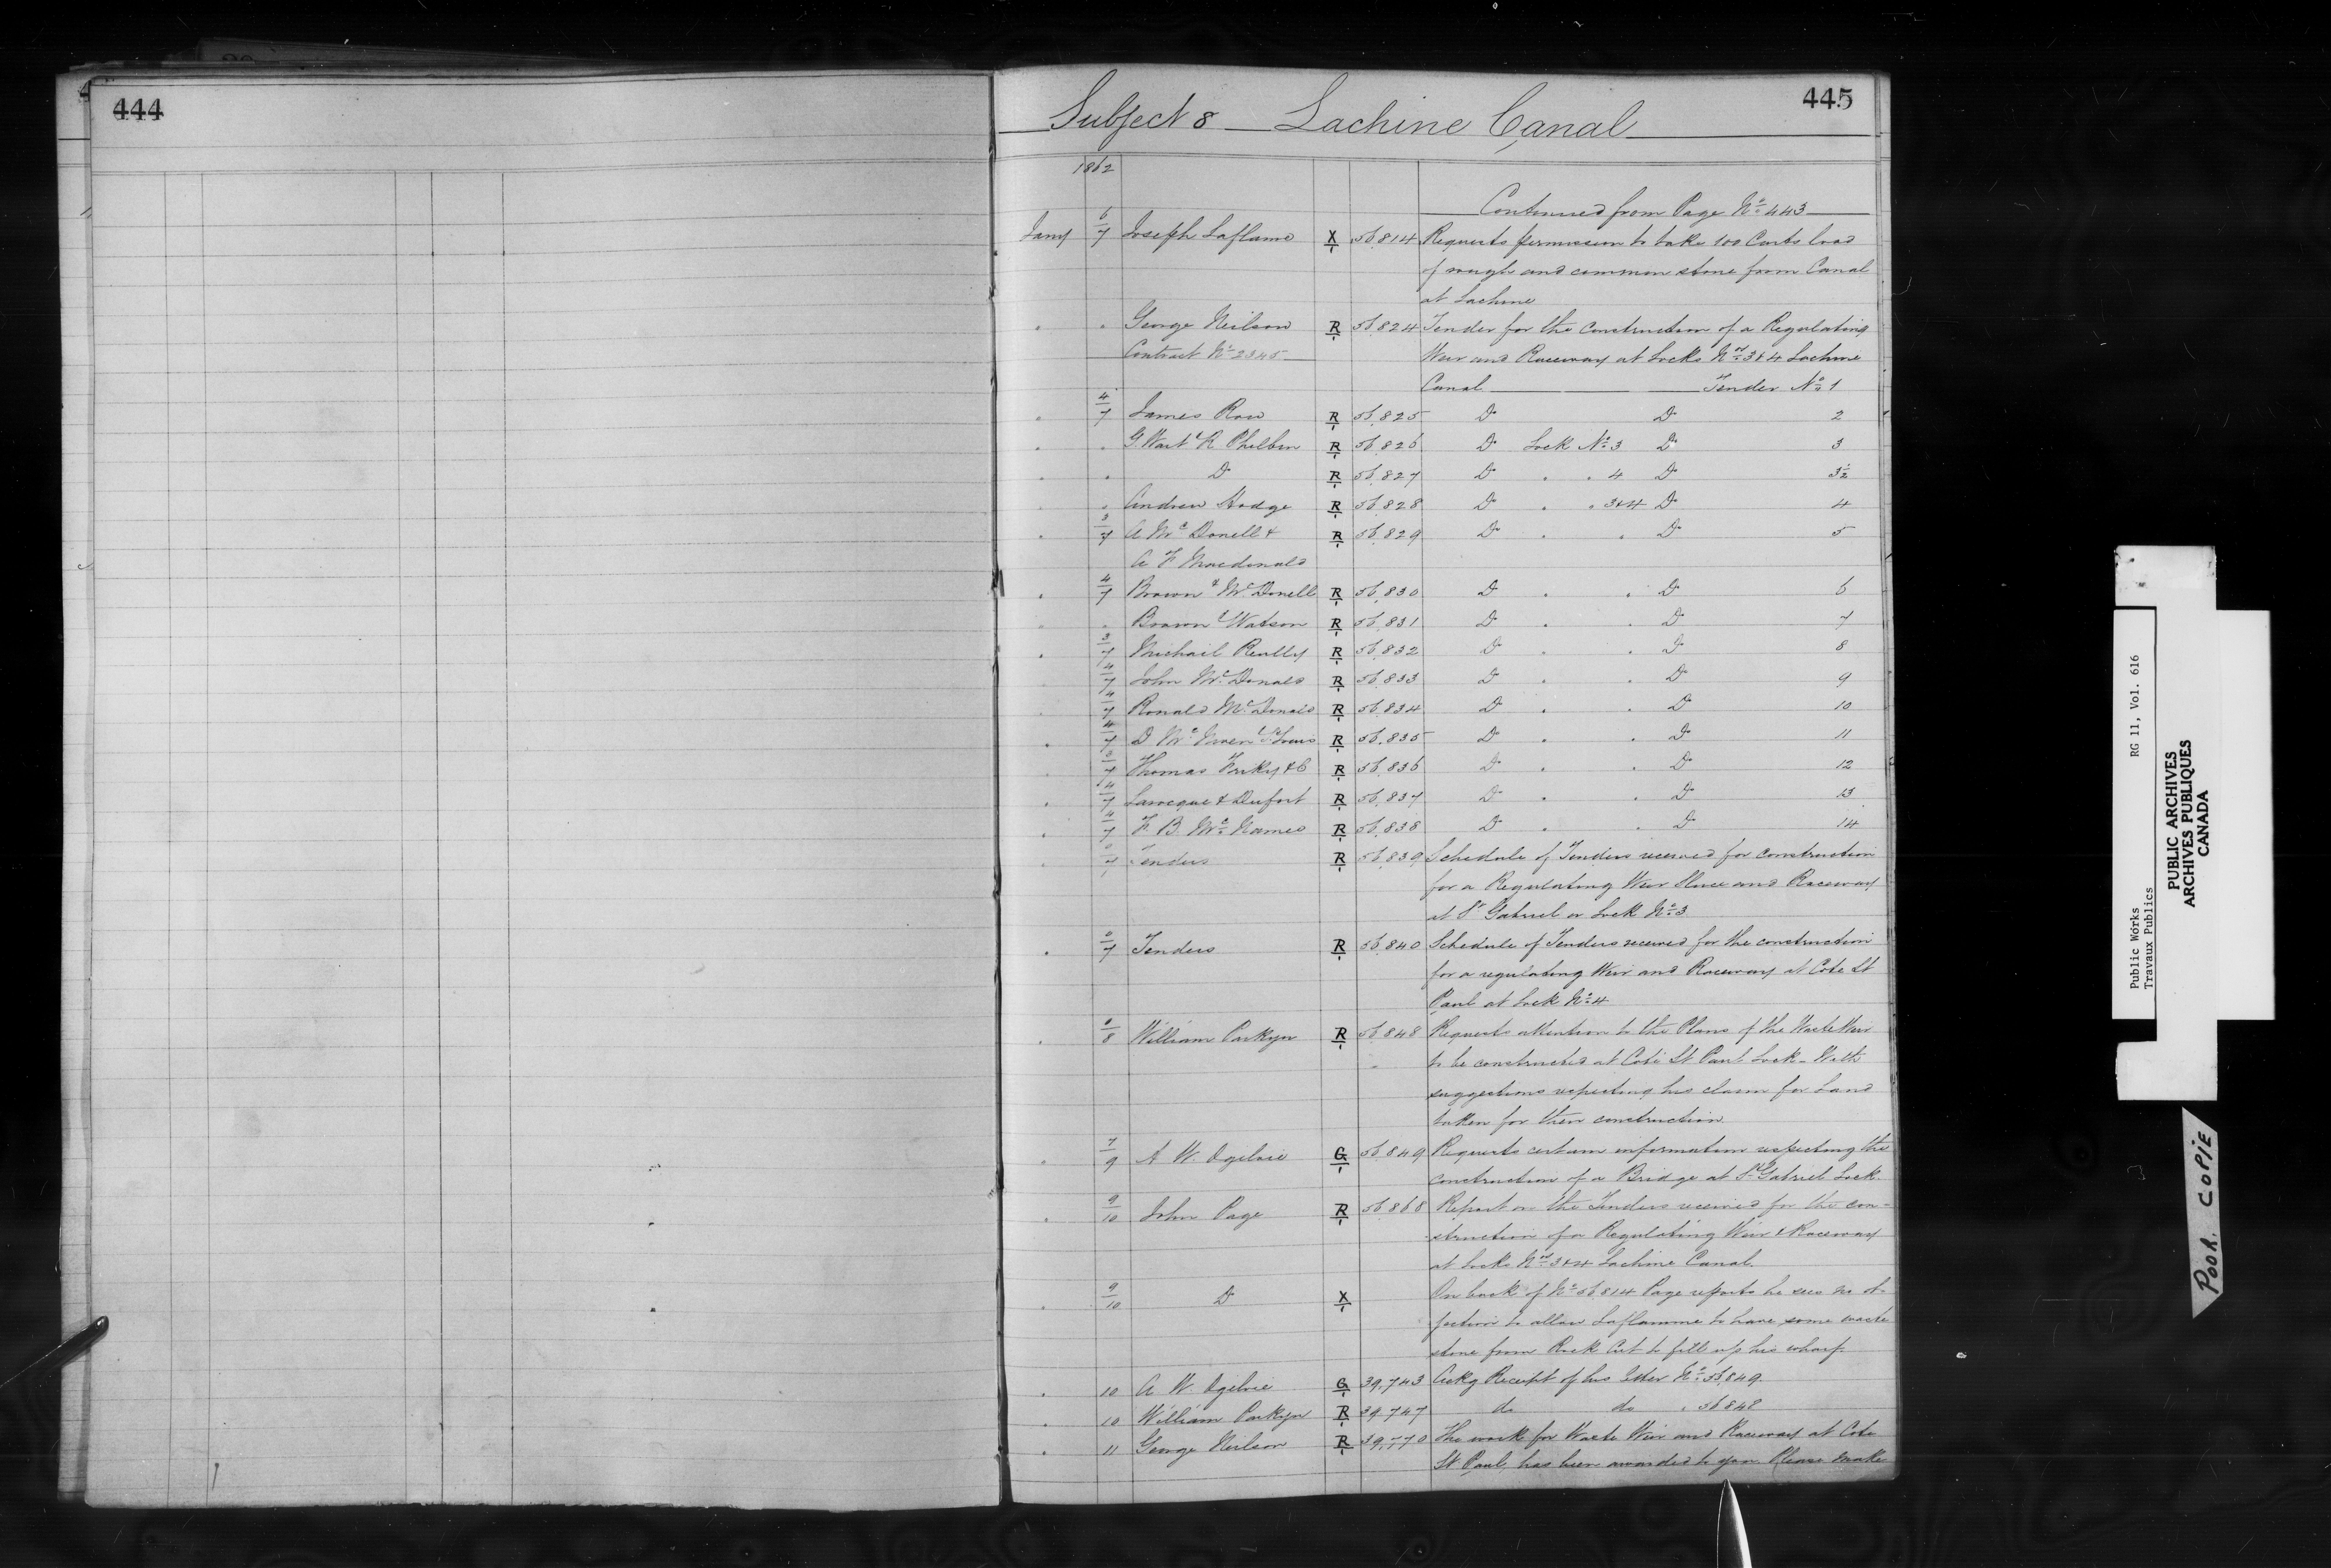 444
445
Subject 8 Lachine Canal
1862
Continued from Page No 443
Jany 6/7 Joseph Laflame X/1 56,814 Requests permission to take 100 Carts load
of rough and common stone from Canal
at Lachine
" " George Neilson R/1 56,824 Tender for the Construction of a Regulating
Contract No 2345 Weir and Raceway at Locks Nos 3 & 4 Lachine
Canal Tender No 1
" 4/7 James Row R/1 56,825 Do Do 2
" " G. Wait & R Philbin R/1 56,826 Do Lock No 3 Do 3
" " Do R/1 56,827 Do " " 4 Do 3½
" " Andrew Hodge R/1 56,828 Do " " 3&4 Do 4
" 3/7 A McDonell & R/1 56,829 Do " " Do 5
A F Macdonald
" 4/7 Brown & McDonell R/1 56,830 Do " " Do 6
" " Brown & Watson R/1 56,831 Do " " Do 7
" 3/7 Michael Reilly R/1 56,832 Do " " Do 8
" 4/7 John McDonald R/1 56,833 Do " " Do 9
" 4/7 Ronald McDonald R/1 56,834 Do " " Do 10
" 4/7 D Mc R/1 56,835 Do " " Do 11
" 3/7 Thomas & Co R/1 56,836 Do " " Do 12
" 4/7 Larocque & Dufort R/1 56,837 Do " " Do 13
" 4/7 F. B. McNamee R/1 56,838 Do " " Do 14
" 7 Tenders R/1 56,839 Schedule of Tenders received for construction
for a Regulating Weir Sluice and Raceway
at St Gabriel or Lock No 3
" 0/7 Tenders R/1 56,840 Schedule of Tenders received for the construction
for a regulating Weir and Raceway at Cote St
Paul at Lock No 4
" 8 William Parkyn R/1 56,848 Requests attention to the Plans of the Waste Weir
to be constructed at Coté St Paul Lock - With
suggestions respecting his claim for Land
taken for their construction
" 7/9 A W. Ogilvie G/1 56,849 Requests certain information respecting the
construction of a Bridge at St Gabriel Lock
" 9/10 John Page R/1 56,868 Report on the Tenders received for the con-
struction of a Regulating Weir & Raceway
at Locks Nos 3&4 Lachine Canal.
" 9/10 Do X/1 On back of No 56814 Page reports he sees no ob-
jection to allow Laflamme to have some waste
stone from Rock Cut to fill up his wharf
" 10 A W. Ogilvie G/1 39,743 Ackg Receipt of his letter No 56,849
" 10 William Parkyn R/1 39,747 do do " 56848
" 11 George Neilson R/1 39,770 The work for Waste Weir and Raceway at Cote
St Paul, has been awarded to you. Please make
Public Works RG 11, Vol. 616
Travaux Publics
PUBLIC ARCHIVES
ARCHIVES PUBLIQUES
CANADA
POOR COPIE